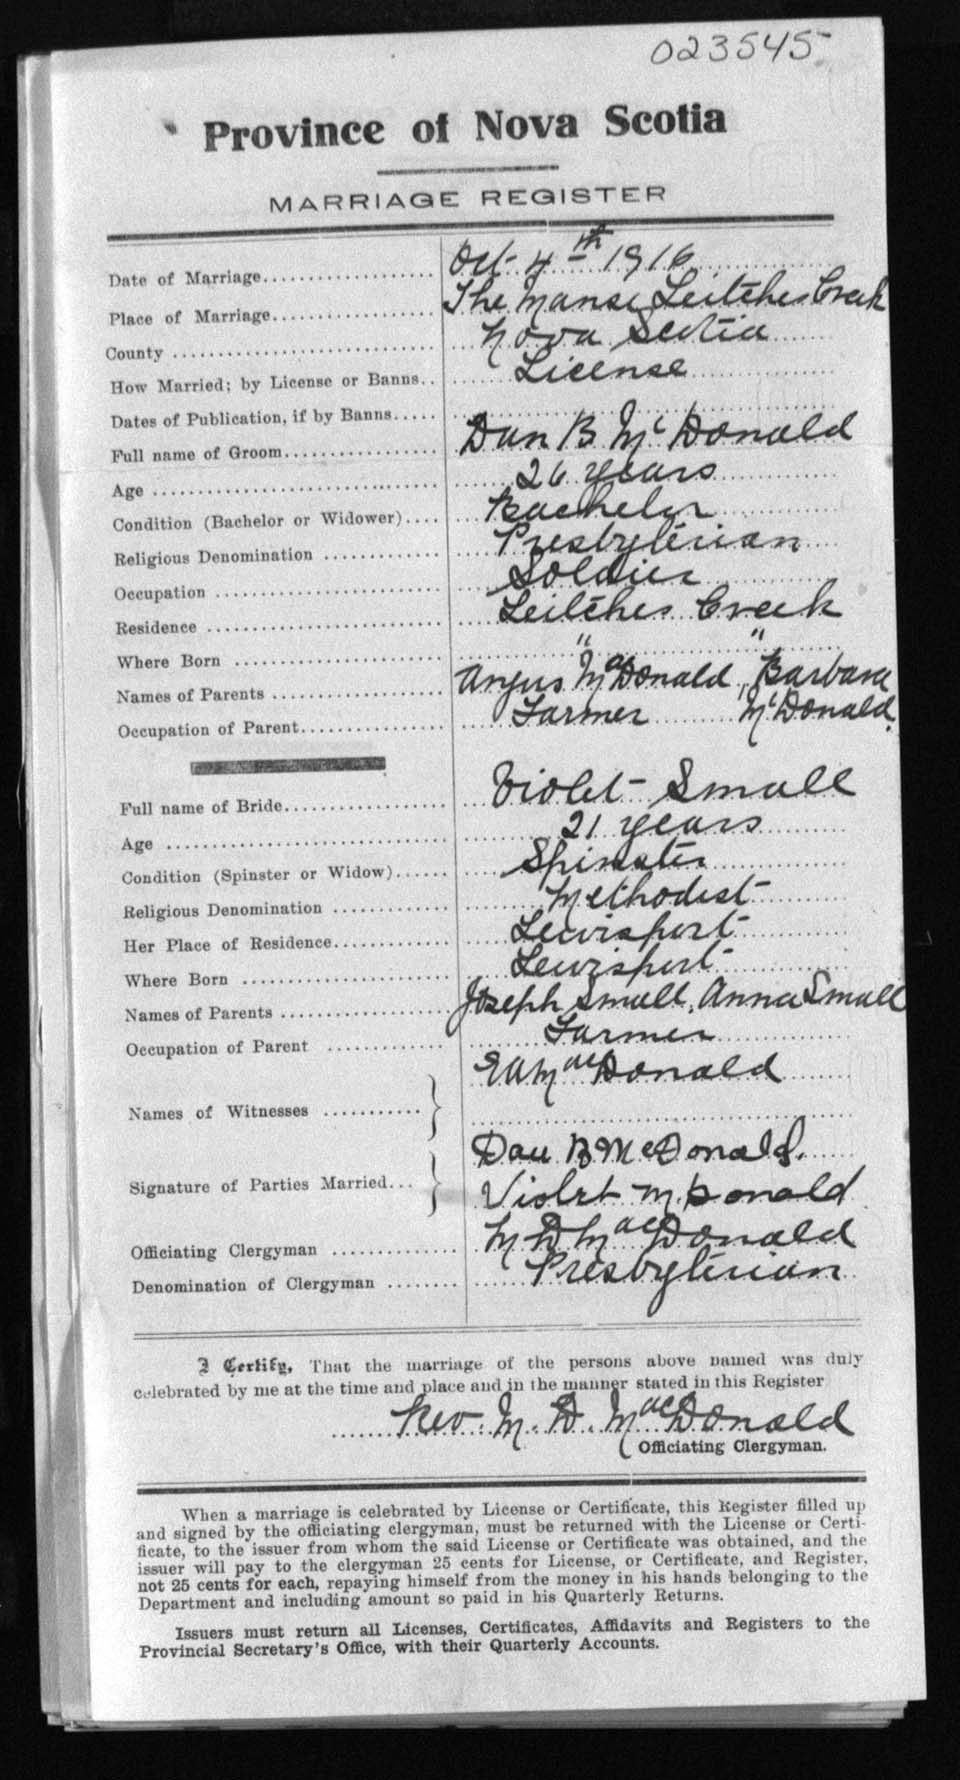 023545
Province of Nova Scotia
MARRIAGE REGISTER
Date of Marriage.................... Oct 4th 1916
Place of Marriage................... The Manse Leitches Creek
County ............................. Nova Scotia
How Married; by License or Banns.. License
Dates of Publication, if by Banns.....
Full name of Groom................ Dan B McDonald
Age ............................... 26 years
Condition (Bachelor or Widower).... Bachelor
Religious Denomination ............ Presbyterian
Occupation ........................ Soldier
Residence ......................... Leitches Creek
Where Born ...................... " "
Names of Parents .................. Angus MacDonald, Barbara
Occupation of Parent............... Farmer McDonald.
Full name of Bride................. Violet Small
Age ............................... 21 years
Condition (Spinster or Widow)...... Spinster
Religious Denomination ............ Methodist
Her Place of Residence............. Lewisport
Where Born ....................... Lewisport
Names of Parents .................. Joseph Small, Anna Small
Occupation of Parent ............ Farmer
Names of Witnesses ........... } EAMacDonald
Signature of Parties Married... } Dan B McDonald.
Violet McDonald
Officiating Clergyman ............. M D MacDonald
Denomination of Clergyman ........ Presbyterian
I Certify, That the marriage of the persons above named was duly
celebrated by me at the time and place and in the manner stated in this Register
Rev. M. D. MacDonald
Officiating Clergyman.
When a marriage is celebrated by License or Certificate, this Register filled up
and signed by the officiating clergyman, must be returned with the License or Certi-
ficate, to the issuer from whom the said License or Certificate was obtained, and the
issuer will pay to the clergyman 25 cents for License, or Certificate, and Register,
not 25 cents for each, repaying himself from the money in his hands belonging to the
Department and including amount so paid in his Quarterly Returns.
Issuers must return all Licenses, Certificates, Affidavits and Registers to the
Provincial Secretary's Office, with their Quarterly Accounts.